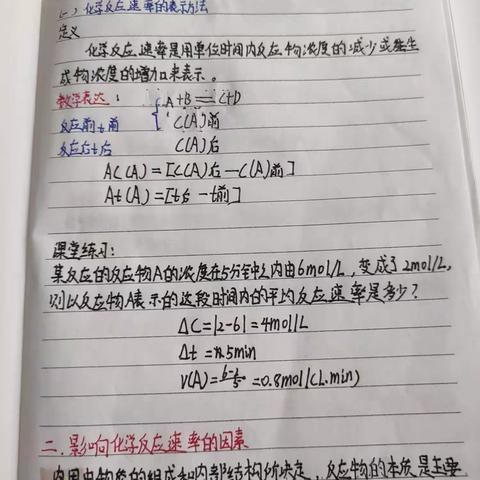 (一)化学反应速率的表示方法
定义
化学反应速率是用单位时间内反应物浓度的减少或生
成物浓度的增加来表示。
数学表达: A+B=C+D
反应前t前 C(A)前
反应后t后 C(A)后
△C(A)=[C(A)后-C(A)前]
△t(A)=[t后-t前]
课堂练习:
某反应的反应物A的浓度在5分钟之内由6mol/L,变成了2mol/L,
则以反应物A表示的这段时间内的平均反应速率是多少?
△C=|2-6|=4mol/L
△t=5min
V(A)= =0.8mol/(L.min)
二.影响化学反应速率的因素
内因由物质的组成和内部结构所决定,反应物的本质是主要